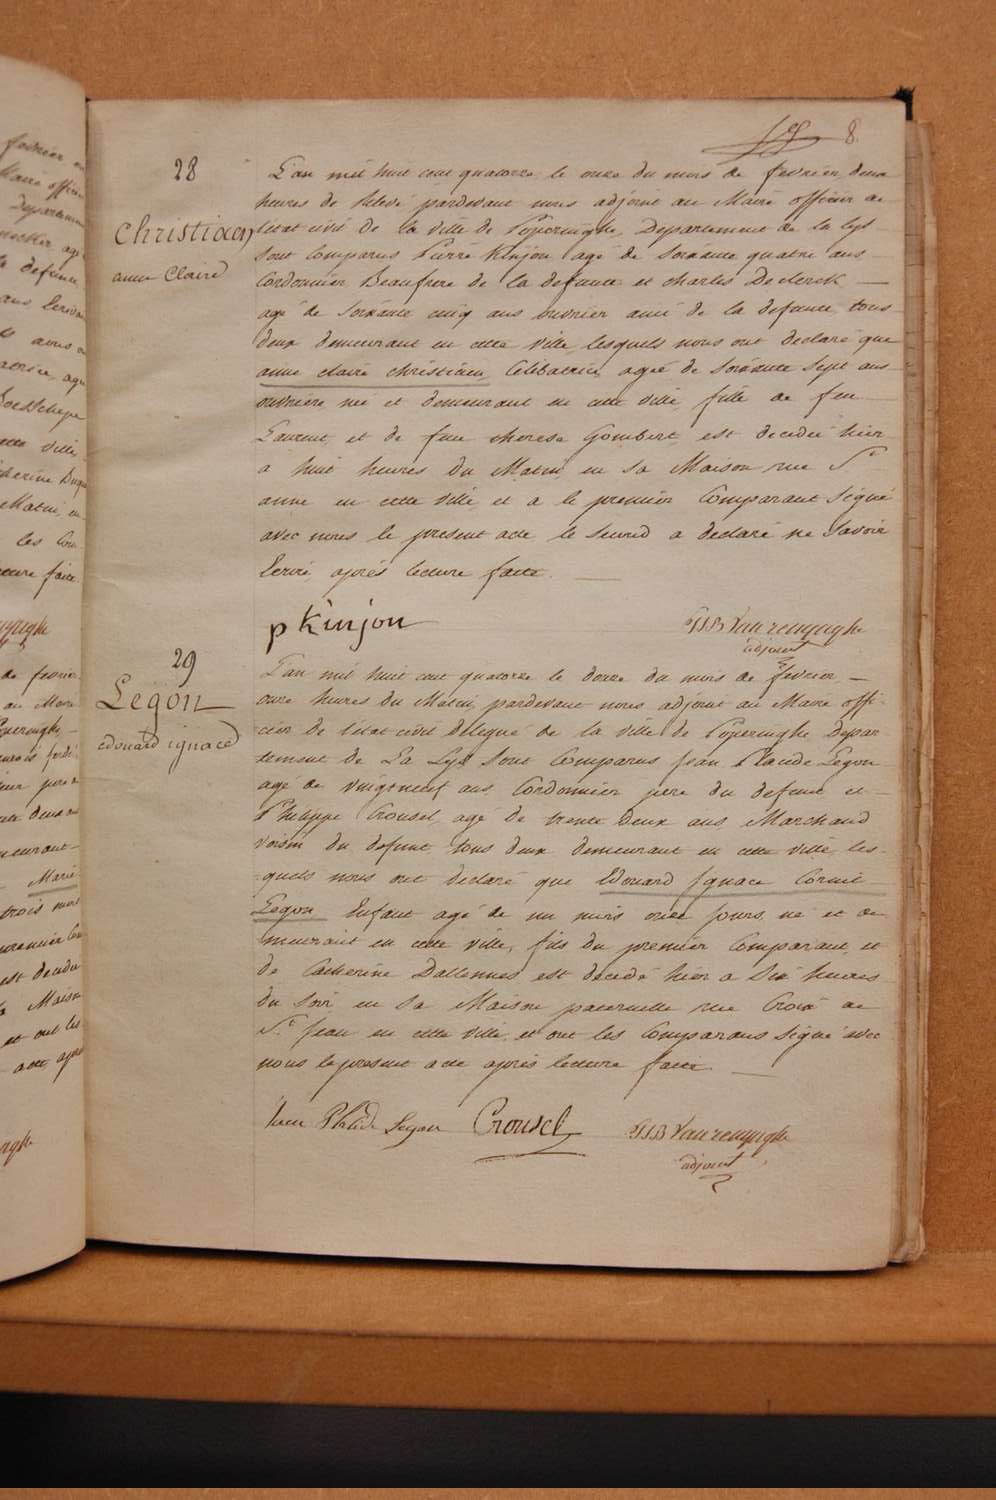 8.
28
Christiaen
anne Claire
L'an mil huit cent quatorze le onze du mois de fevrier deux
heures de Relevé pardevant nous adjoint au Maire officier de
létat civil de la ville de Poperinghe, Departement de la Lys
Sont Comparus Pierre Kinjon agé de Soixante quatre ans
Cordonnier Beaufrere de la defunte et Charles Declerck —
agé de Soixante cinq ans ouvrier ami de la defunte, tous
deux demeurant en cette ville, lesquels nous ont declaré que
anne claire christiaen, Célibatrice, ageé de Soixante Sept ans
ouvriere né et demeurant en cette ville, fille de feu
Laurent, et de feue therese Gombert, est decedeé hier
a huit heures du Matin, en Sa Maison rue St
anne en cette ville et a le premier Comparant Signé
avec nous le present acte le Second a declaré ne Savoir
Ecrire, aprés lecture faite. —
p Kinjon
PJB Vanrenynghe
adjoint
29
Legon
edouard ignace
L'an mil huit cent quatorze le douze du mois de fevrier —
onze heures du Matin, pardevant nous adjoint au Maire offi-
cier de létat civil delegué de la ville de Poperinghe Depar-
tement de La Lys Sont Comparus Jean Placide Legon
agé de vingtneuf ans, Cordonnier pere du defunt et
Philippe Crousel, agé de trente Deux ans Marchand
voisin du defunt tous deux demeurant en cette ville, les-
quels nous ont declaré que Edouard Ignace Cornil
Legon Enfant agé de un mois onze jours, né et de
meurant en cette ville, fils du premier Comparant, et
de Catherine Dallennes est decedé hier a Six heures
du Soir en Sa Maison paternelle rue Croix de
St Jean en cette ville, et ont les Comparans Signé avec
nous le present acte aprés lecture faite. —
Legon Crousel
PJB Vanrenynghe
adjoint